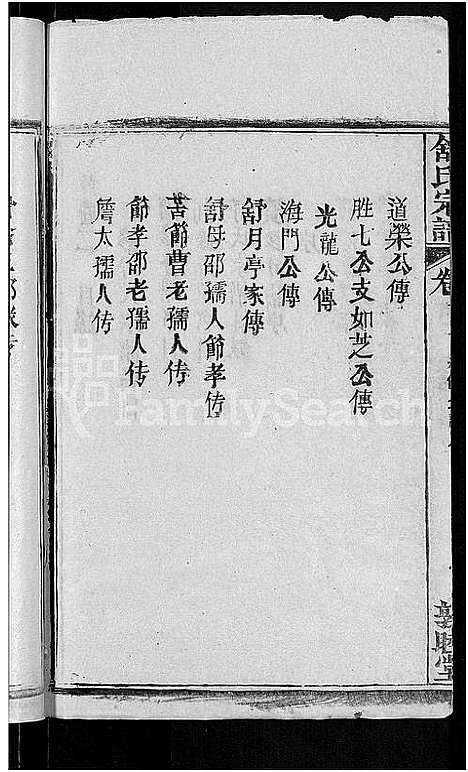 舒氏宗譜
卷
敦睦堂
道榮公傳
胜七公支如芝公傳
光龍公傳
海門公傳
舒月亭家傳
舒母邵孺人節孝传
苦節曹老孺人传
節孝邵老孺人传
詹太孺人传
FamilySearch